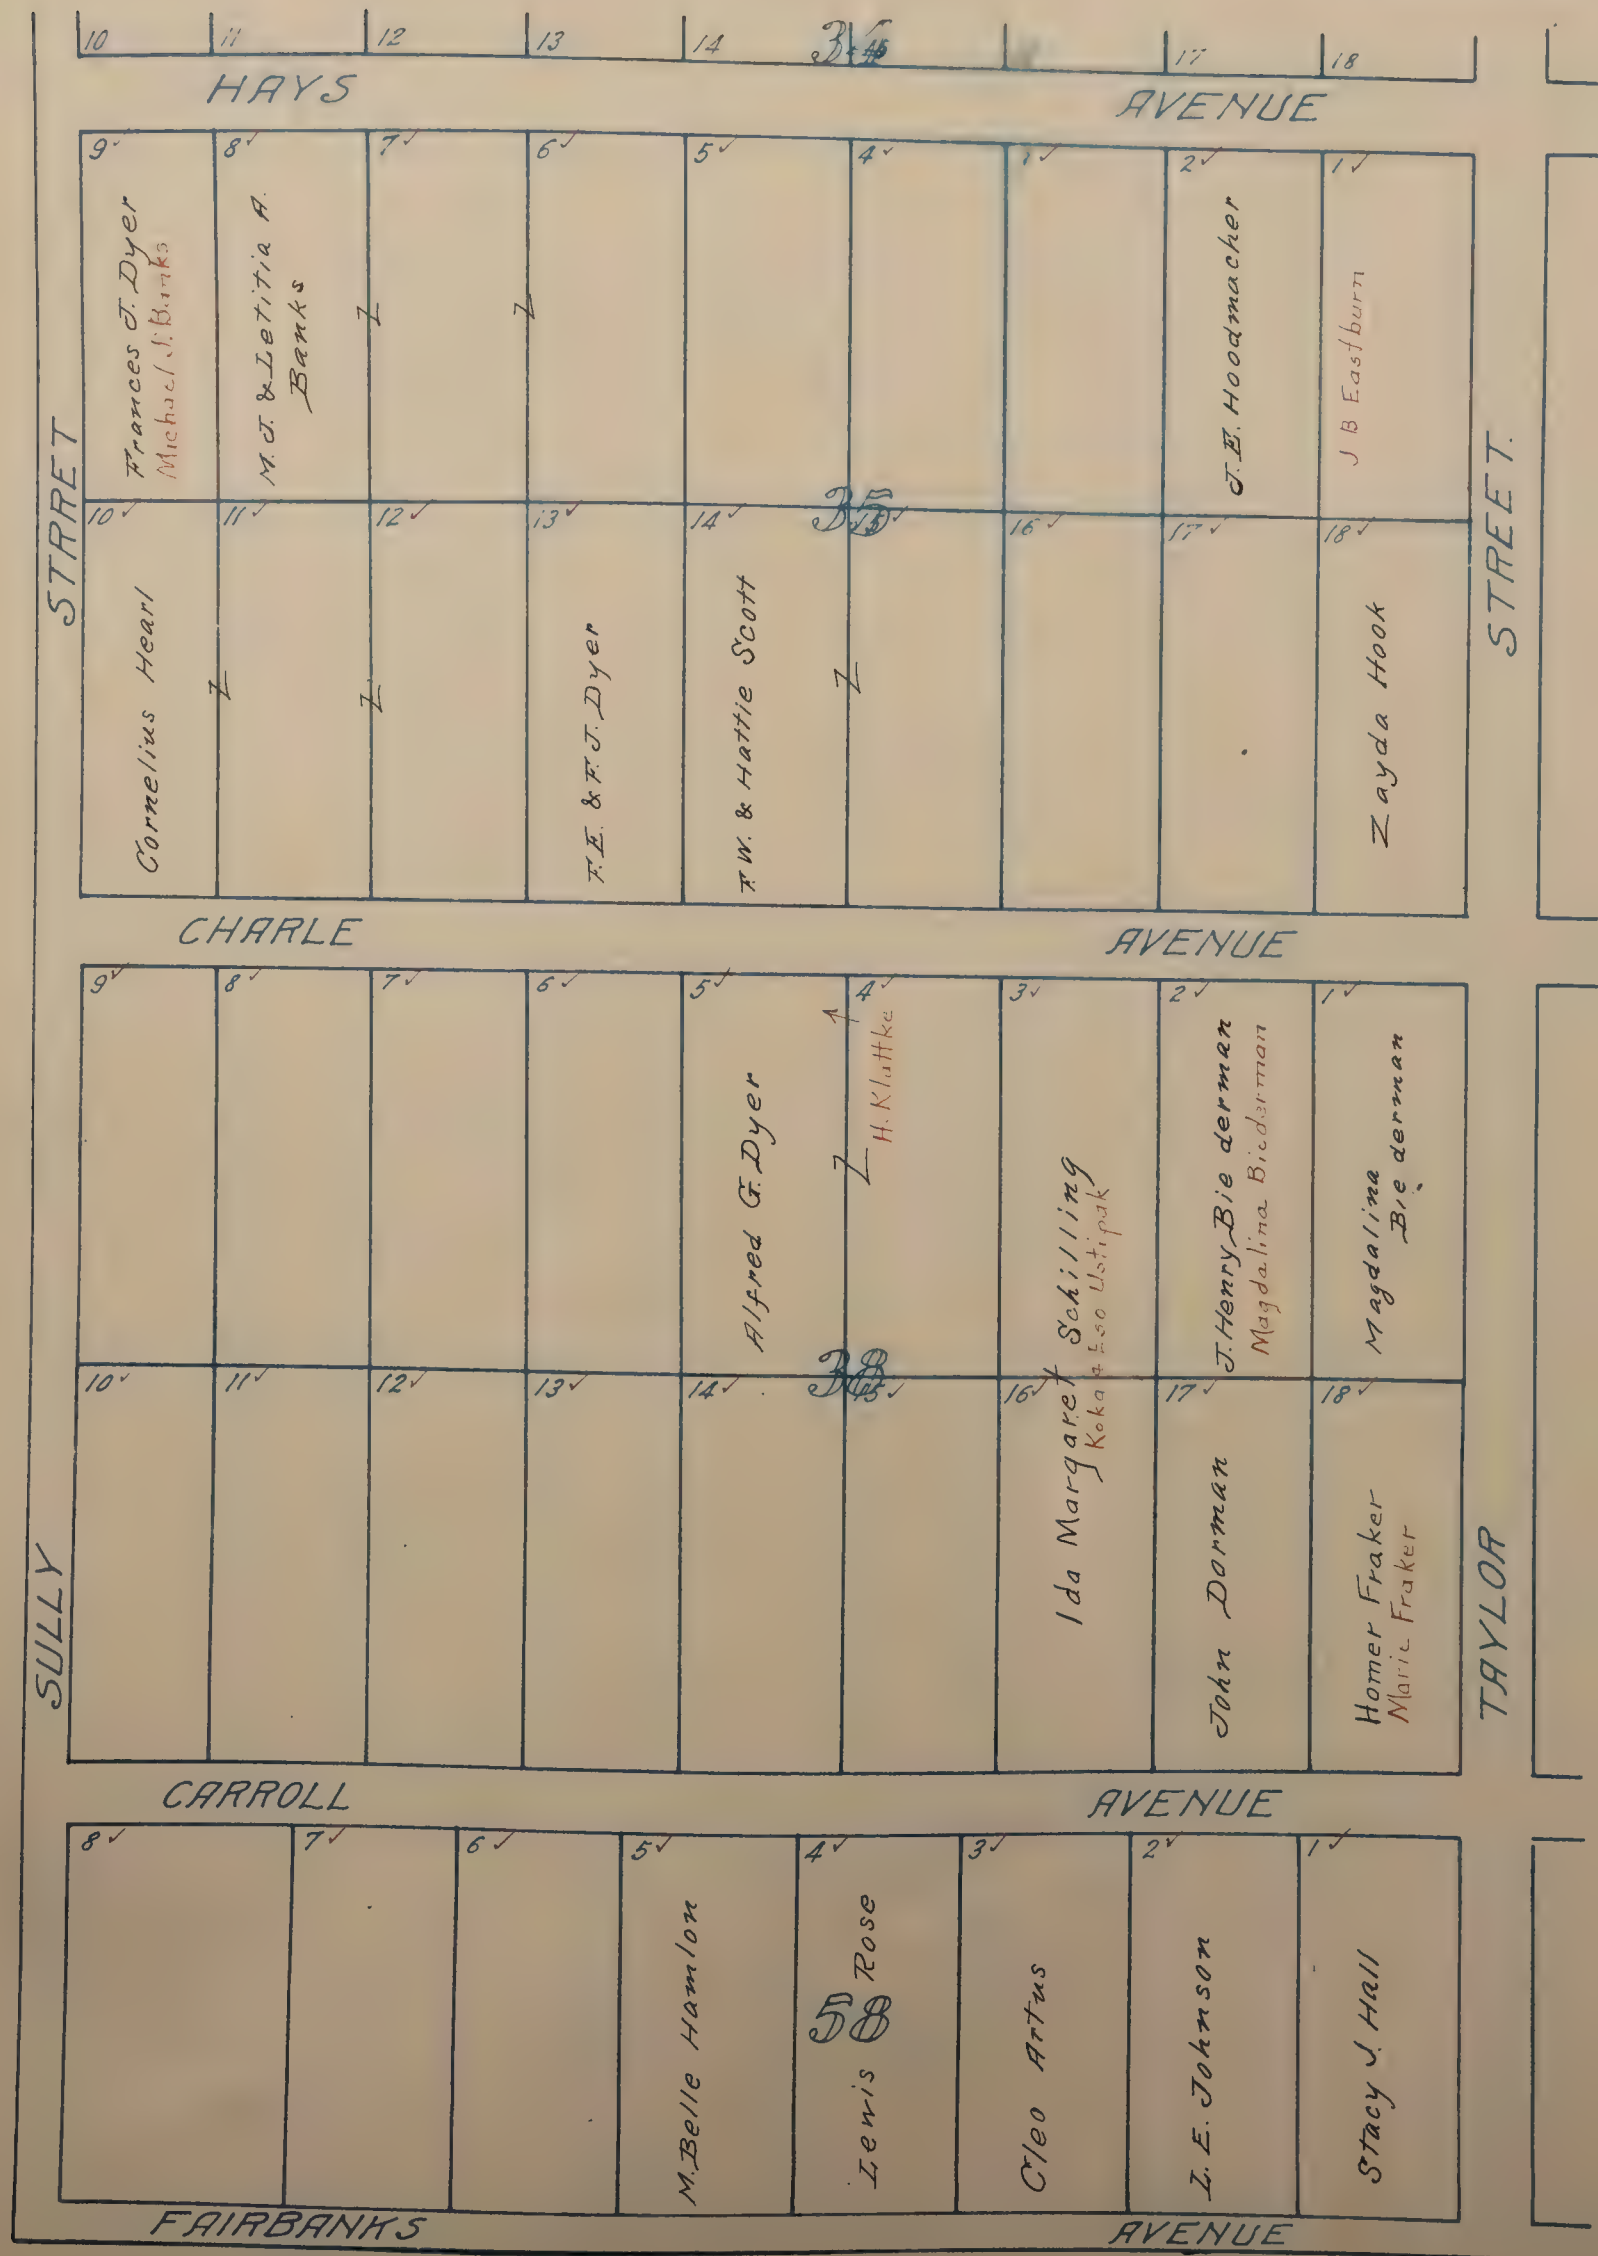 10 11 12 13 14 17 18
HAYS AVENUE
9 8 7 6 5 4 2 1
Frances J. Dyer
Michael J. Banks
M. J. & Letitia A.
Banks
J. E. Hoodmacher
J B Eastburn
STRRET
STREET.
35
10 11 12 13 14 15 16 17 18
Cornelius Hearl
F. E. & F. J. Dyer
F. W. & Hattie Scott
Zayda Hook
CHARLE AVENUE
9 8 7 6 5 4 3 2 1
Alfred G. Dyer
H. Kluttke
Ida Margaret Schilling
J. Henry Bie derman
Magdalina Biederman
Magdalina
Bie derman
38
10 11 12 13 14 15 16 17 18
John Dorman
Homer Fraker
Marie Fraker
SULLY
TAYLOR
CARROLL AVENUE
8 7 6 5 4 3 2 1
M. Belle Hamlon
Lewis Rose
58
Cleo Artus
L. E. Johnson
Stacy J. Hall
FAIRBANKS AVENUE